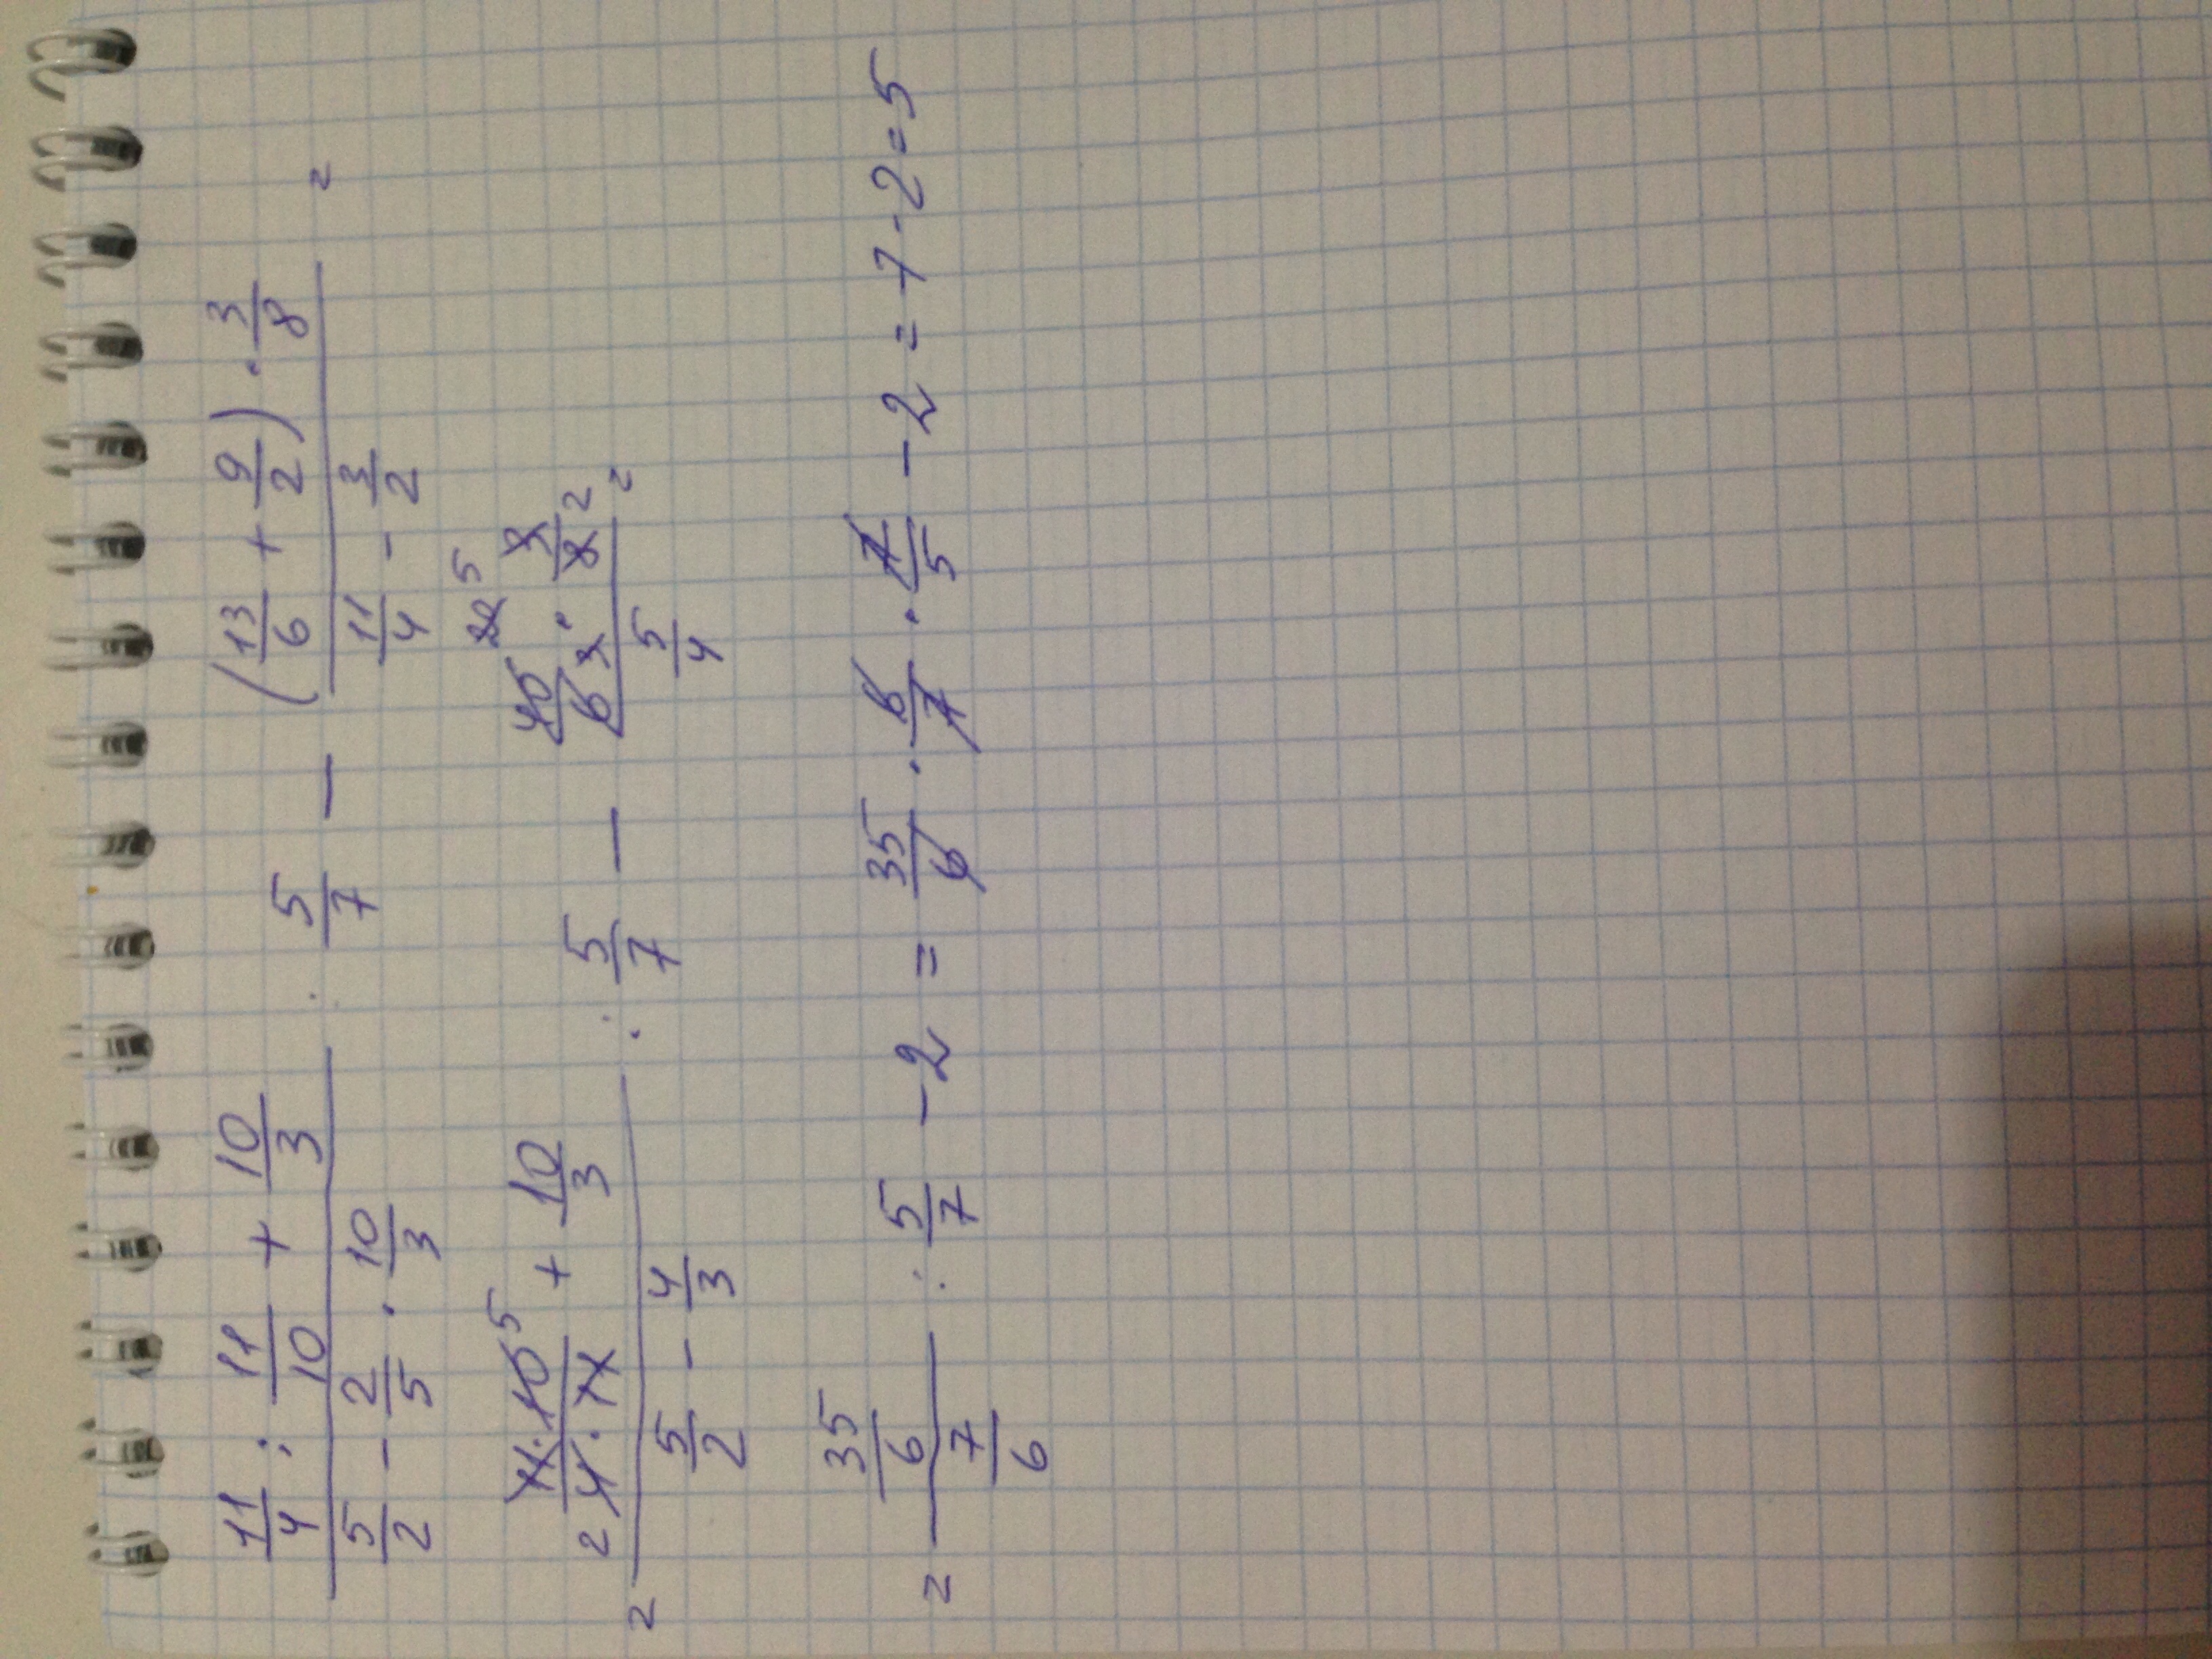 \frac{\frac{11}{4} : \frac{11}{10} + \frac{10}{3}}{\frac{5}{2} - \frac{2}{5} \cdot \frac{10}{3}} : \frac{5}{7} - \frac{(\frac{13}{6} + \frac{9}{2}) \cdot \frac{3}{8}}{\frac{11}{4} - \frac{3}{2}} =
= \frac{\frac{11 \cdot 10^5}{^2 4 \cdot 11} + \frac{10}{3}}{\frac{5}{2} - \frac{4}{3}} : \frac{5}{7} - \frac{\frac{40 \, 20 \, 5}{6 \, 3} \cdot \frac{3}{8 \, 2}}{\frac{5}{4}} =
= \frac{\frac{35}{6}}{\frac{7}{6}} : \frac{5}{7} - 2 = \frac{35}{6} \cdot \frac{6}{7} \cdot \frac{7}{5} - 2 = 7 - 2 = 5